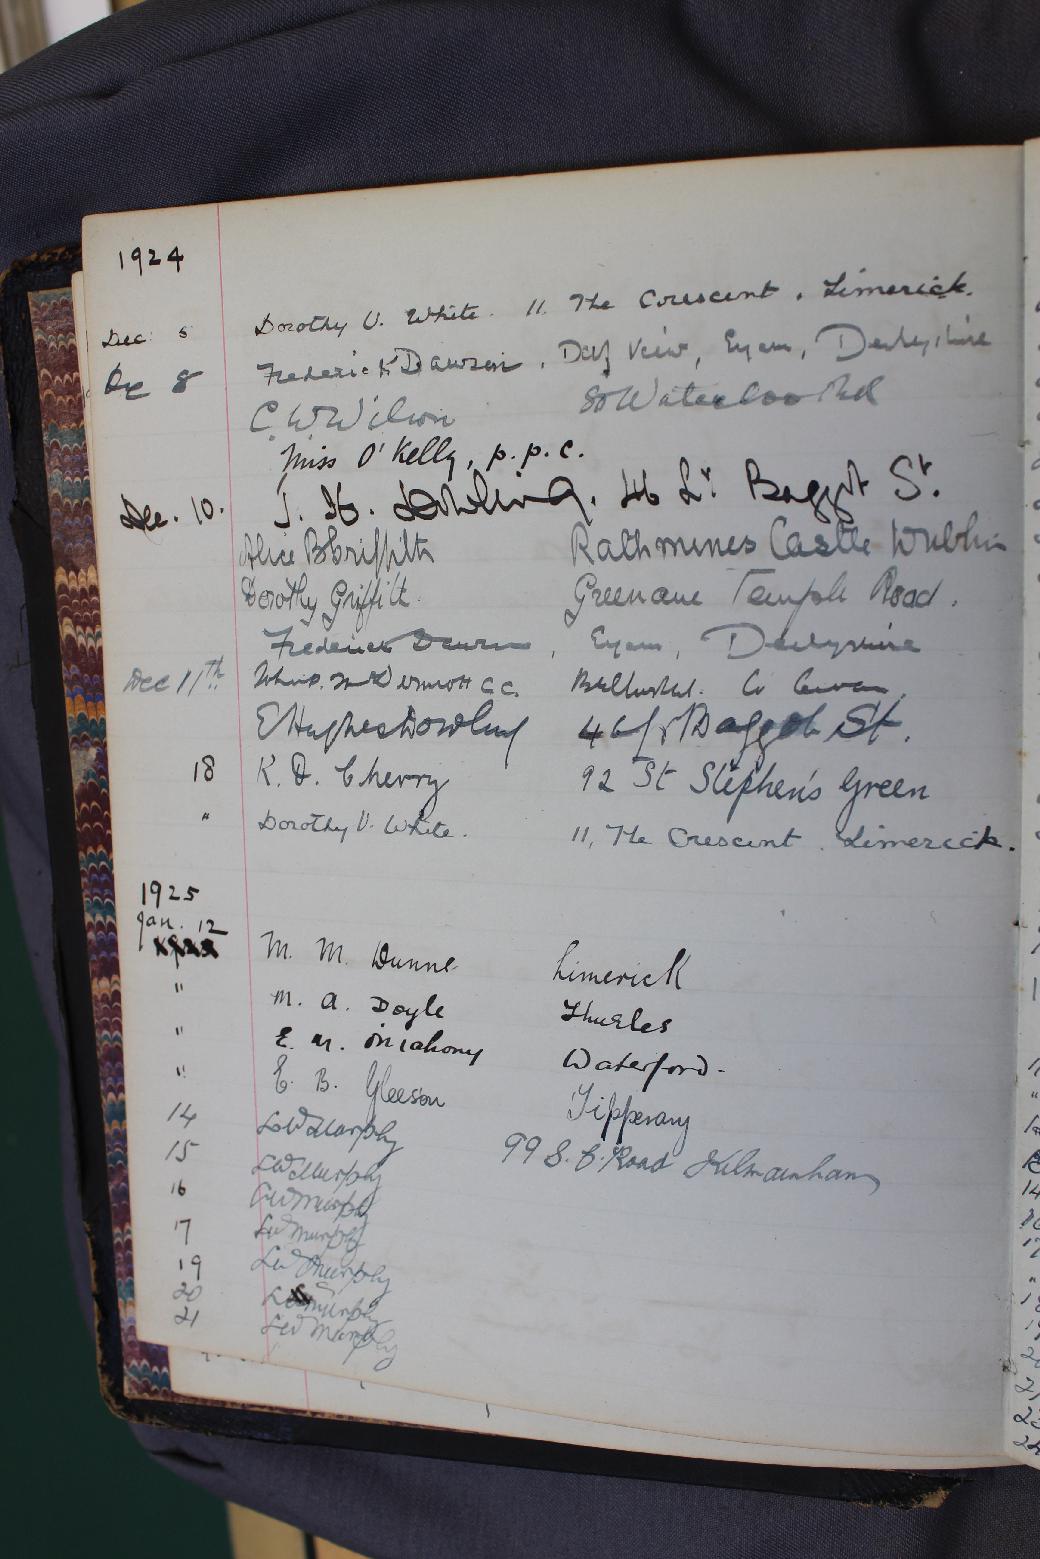 1924
Dec 5 Dorothy V. White. 11. The Crescent. Limerick.
Dec 8 Frederick Dawson, View, Eyam, Derbyshire
C. W. Wilson 80 Waterloo Rd
Miss O'Kelly, p.p.c.
Dec. 10. J. H. Dowling. 46 Lr. Baggot St.
Alice B Griffith Rathmines Castle Dublin
Dorothy Griffith. Greenane Temple Road.
Frederick Dawson, Eyam, Derbyshire
Dec 11th McDermott C.C. Co Cavan,
E Hughes Dowling 46 Lr Baggot St.
18 K. D. Cherry 92 St Stephen's Green
" Dorothy V. White. 11, The Crescent. Limerick.
1925
Jan. 12
M. M. Dunne Limerick
" M. A. Doyle Thurles
" E. M. O'Mahony Waterford.
" E. B. Gleeson Tipperary
14 LW Murphy 99 S. C. Road Kilmainham
15 LW Murphy
16 LW Murphy
17 LW Murphy
19 LW Murphy
20 LW Murphy
21 LW Murphy